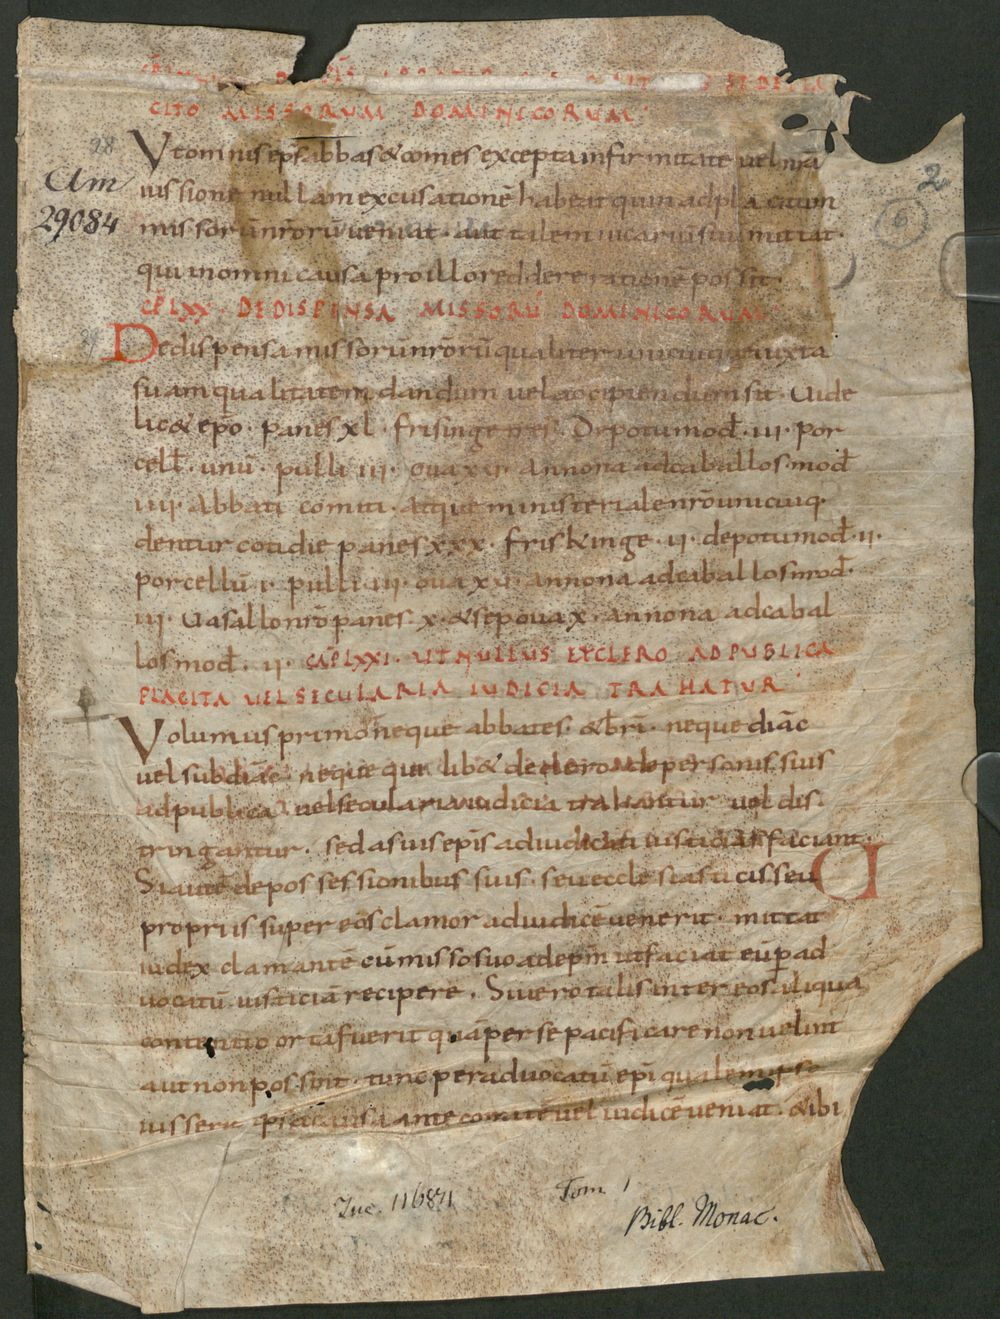 CITO MISSORUM DOMINICORUM·
28
Vt omnis ep̅s abbas & comes excepta infirmitate vel nr̅a
Clm
iussione nullam excusationē habeat quin ad placitum
29084
missorū nr̅orū veniat· aut talem vicariū suū mittat·
qui in omni causa pro illo reddere rationē possit·
2
6
CAP̅ LXX· DE DISPENSA MISSORŪ DOMINICORUM·
29
De dispensa missorū nr̅orū qualiter unicuique iuxta
suam qualitatem dandum vel accipiendum sit· Vide
lic& ep̅o· panes xl· frisinge Depotu mod̅· iii· por
cell̅· unū· pulli iii· ova xv· annona ad caballos mod̅
iiii· Abbati comiti· atque ministeriale nr̅o unicuiq·
dentur cotidie panes xxx· friskinge· ii· depotu mod̅· ii·
porcellū i· pulli iii· ova xv· annona ad caballos mod̅·
iii· Vasallo nr̅o panes· x· & sep ova x· annona ad cabal
los mod̅· ii· CAP̅ LXXI· UT NULLUS EX CLERO AD PUBLICA
PLACITA VEL SECULARIA IUDICIA TRAHATUR·
Volumus primo neque abbates· & br̅i· neque diāc
vel subdiāc· neque qui lib& de clero de personis suis
ad publica vel secularia iudicia trahantur vel dis
tringantur· sed a suis ep̅is adiudicati iusticias faciant·
Si autē de possessionibus suis· seu ecclesiasticis seu
propriis super eos clamor ad iudicē venerit· mittat
iudex clamantē cū misso suo ad ep̅m ut faciat eū p̱ ad
vocatū iusticiā recipere· Si vero talis inter eos aliqua
contentio orta fuerit quā per se pacificare non velint
aut non possint· tunc per advocatū ep̅i qualem ipse
iusserit ipsa causa ante comitē vel iudicē veniat· & ibi
Tom 1
Bibl. Monac.